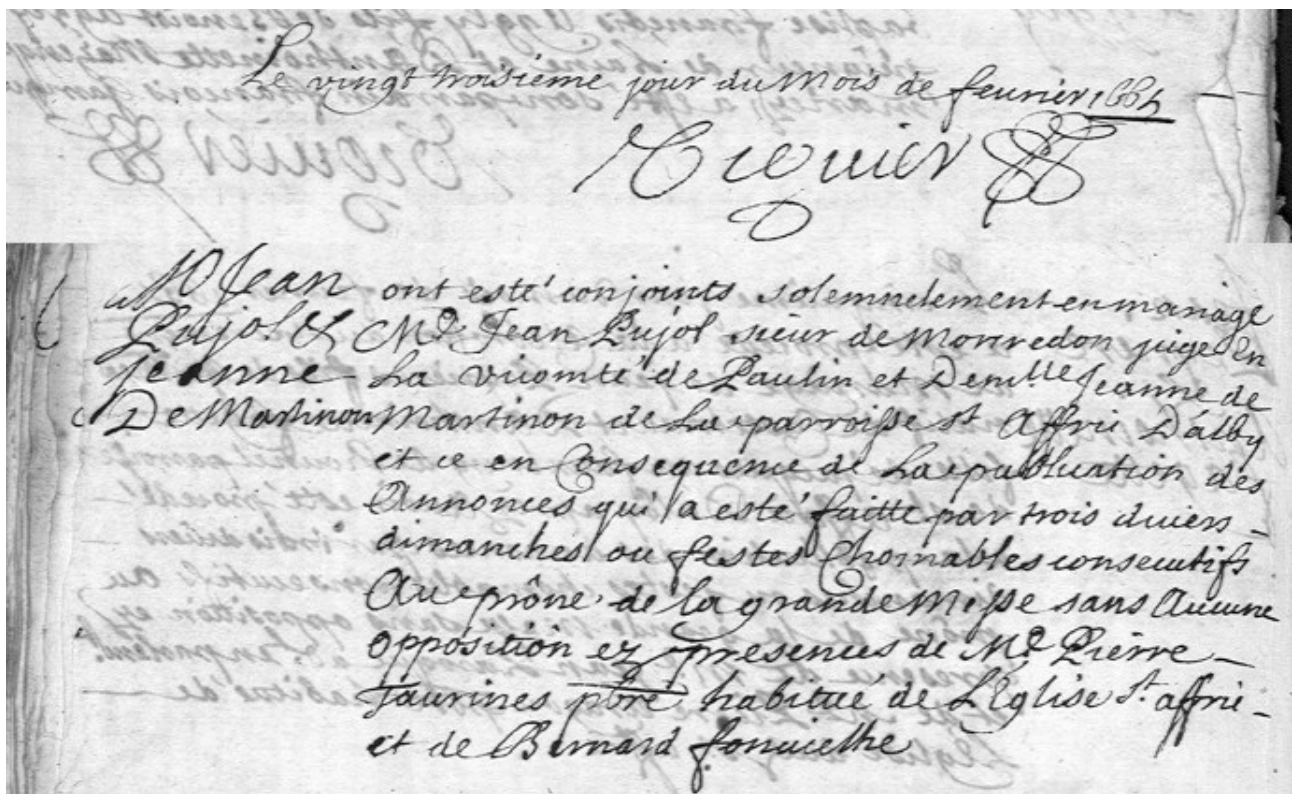 Le vingt troisiéme jour du Mois de feurier 1664
Crouuier
Mo Jean
Pujol &
Jeanne
De Martinon
ont esté conjoints solemnelement en mariage
Me Jean Pujol sieur de Monredon juge En
La vicomté de Paulin et Demlle Jeanne de
Martinon de La parroisse st Affric D'alby
et ce en Consequence de La publication des
Annonces qui a esté faitte par trois diuers
dimanches ou festes Chomables consecutifs
Au prône de la grande Messe sans Aucune
opposition ez presences de Me Pierre
Taurines pbre habitué de L'Eglise st affric
et de Bernard fonuielhe